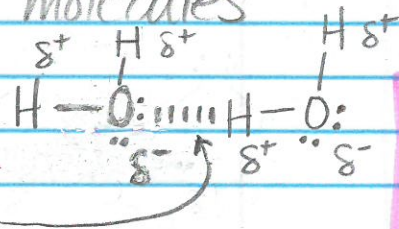 molecules
δ+ H δ+ H δ+
H—O:ııııııH—O:
δ- δ+ δ-